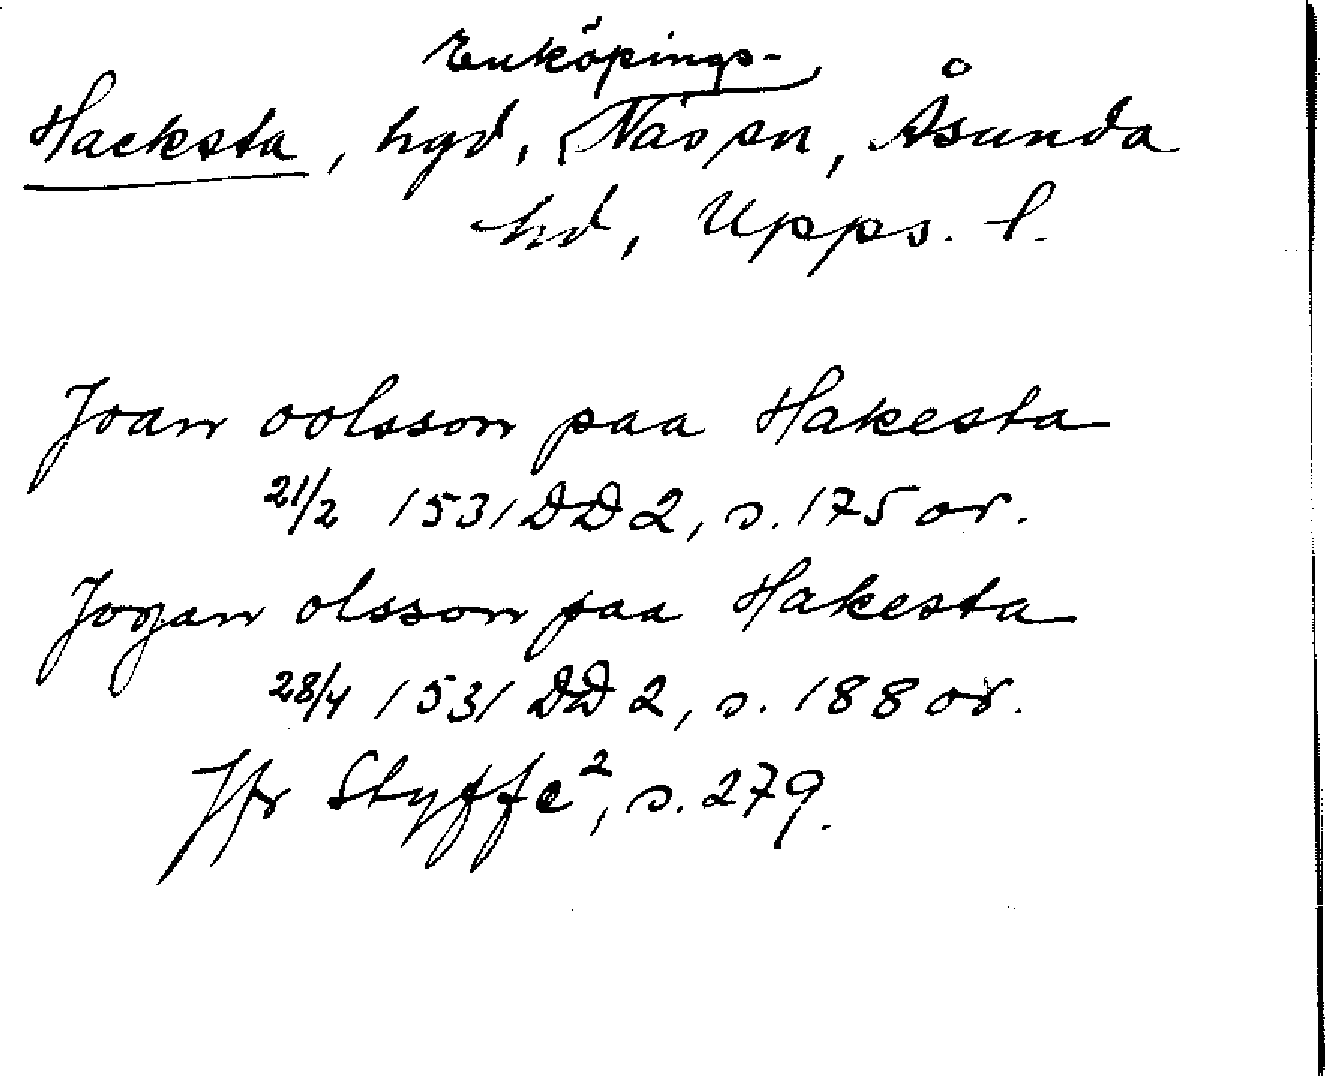 Enköpings-
Hacksta, hgd, Näs sn, Åsunda
hd, Upps. l.
Joan oolsson paa Hakesta
21/2 1531 DD 2, s. 175 or.
Jogan olsson paa Hakesta
28/4 1531 DD 2, s. 188 or.
Jfr Styffe², s. 279.